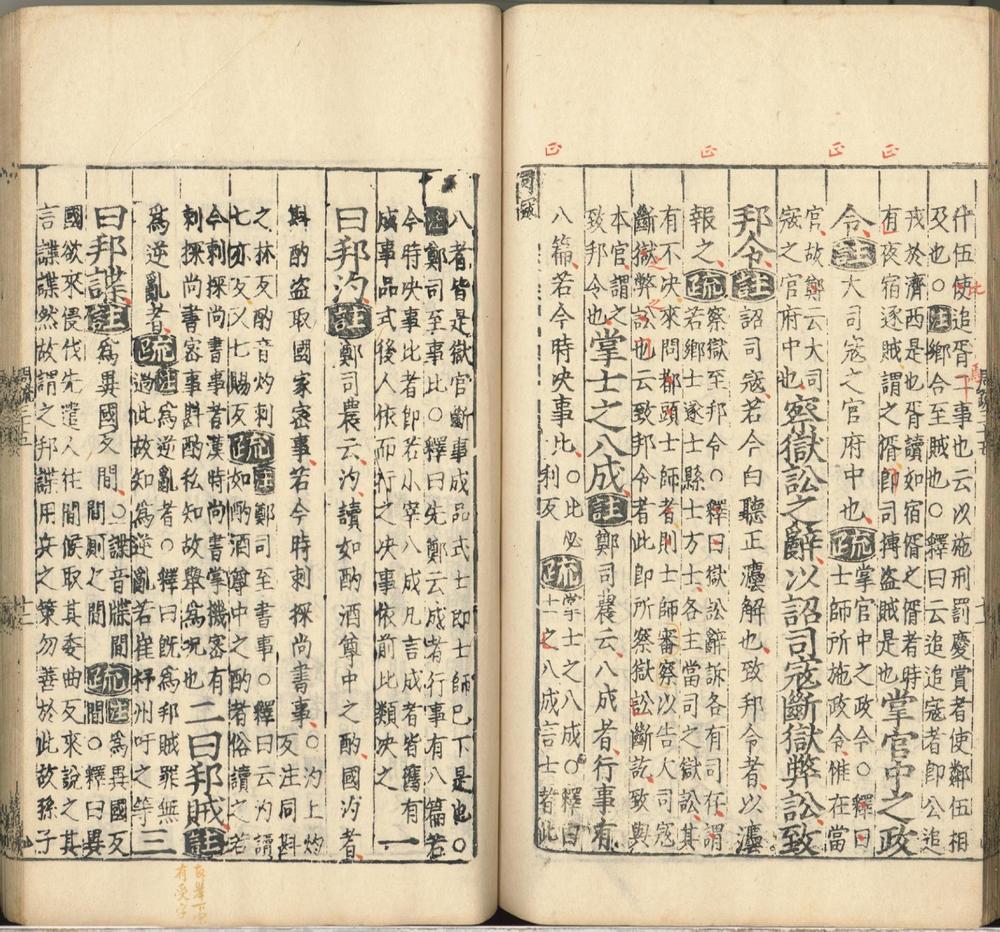 什伍使追胥二事也云以施刑罰慶賞者使鄰伍相
及也○注鄉合至賊也○釋曰云追追寇者即公追
戎於濟西是也胥讀如宿偦之偦者時
有夜宿逐賊謂之偦即司搏盜賊是也 掌官中之政
令註大司寇之官府中也疏掌官中之政令○釋曰
士師所施政令惟在當
官故鄭云大司
寇之官府中也 察獄訟之辭以詔司寇斷獄弊訟致
邦令註詔司寇若今白聽正灋解也致邦令者以灋
報之疏察獄至邦令○釋曰獄訟辭訴各有司存謂
若鄉士遂士縣士方士各主當司之獄訟其
有不決來問都頭士師者則士師審察以告大司寇
斷獄弊訟也云致邦令者此即所察獄訟斷訖致與
本官謂之
致邦令也 掌士之八成註鄭司農云八成者行事有
八篇若今時決事比○比必
利反疏掌士之八成○釋曰
士之八成言士者此
司寇
八者皆是獄官斷事成品式士即士師巳下是也○
注鄭司至事比○釋曰先鄭云成者行事有八篇若
今時決事比者即若小宰八成凡言成者皆舊有
成事品式後人依而行之決事依前比類決之 一
曰邦汋註鄭司農云汋讀如酌酒尊中之酌國汋者
斟酌盜取國家密事若今時刺探尚書事○汋上灼
反注同斟
之林反酌音灼刺
七亦反又七賜反疏注鄭司至書事○釋曰云汋讀
如酌酒尊中之酌者俗讀之若
今刺探尚書事者漢時尚書掌機密有
刺探尚書密事斟酌私知故舉為況也 二曰邦賊註
為逆亂者疏注為逆亂者○釋曰既為邦賊罪無
過此故知為逆亂若崔杼州吁之等 三
曰邦諜註為異國反間○諜音牒間
間廁之間疏注為異國反
間○釋曰異
國欲來侵伐先遣人往間候取其委曲反來說之其
言諜諜然故謂之邦諜用兵之策勿善於此故孫子